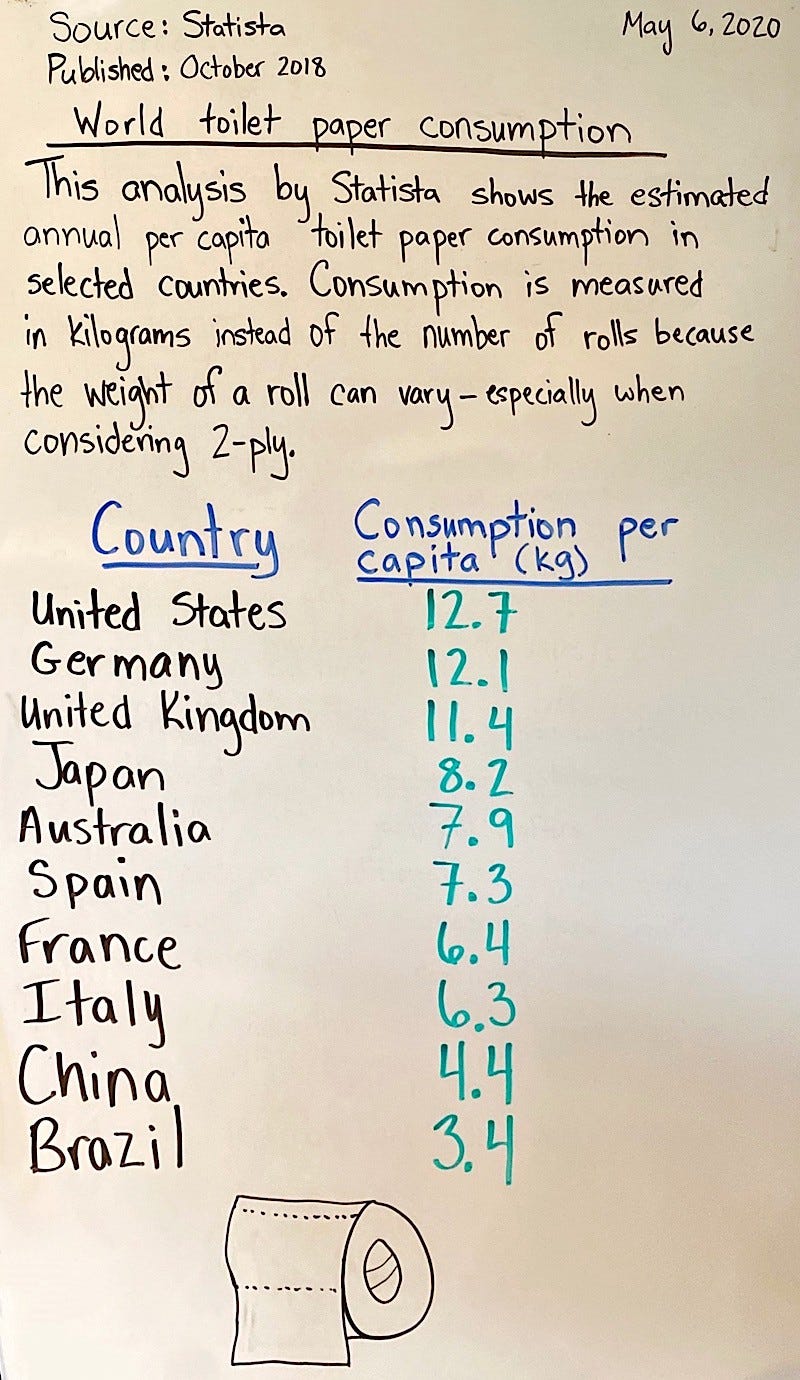 Source: Statista
May 6, 2020
Published: October 2018
World toilet paper consumption
This analysis by Statista shows the estimated
annual per capita toilet paper consumption in
selected countries. Consumption is measured
in kilograms instead of the number of rolls because
the weight of a roll can vary – especially when
considering 2-ply.
Country
Consumption per
capita (kg)
United States 12.7
Germany 12.1
United Kingdom 11.4
Japan 8.2
Australia 7.9
Spain 7.3
France 6.4
Italy 6.3
China 4.4
Brazil 3.4